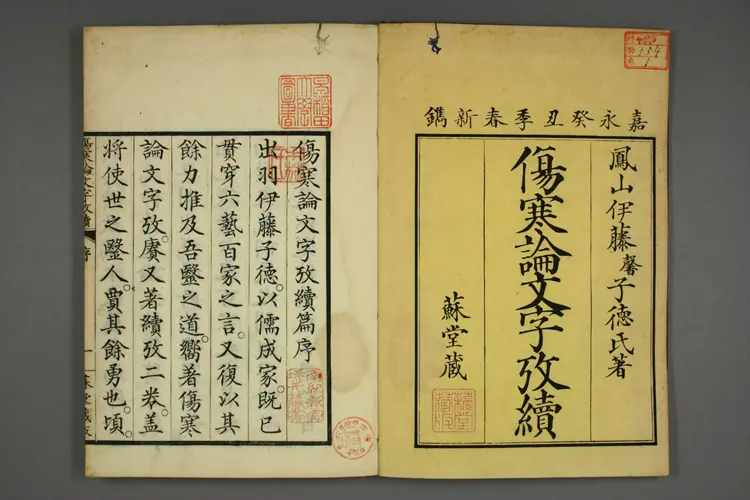 嘉永癸丑季春新鐫
鳳山伊藤馨子徳氏著
傷寒論文字攷續
蘇堂蔵
傷寒論文字攷續篇序
出羽伊藤子德。以儒成家。既已
貫穿六藝百家之言。又復以其
餘力推及吾毉之道。嚮著傷寒
論文字攷。賡又著續攷二卷。盖
將使世之毉人。賈其餘勇也。頃
傷寒論文字攷續
序
一